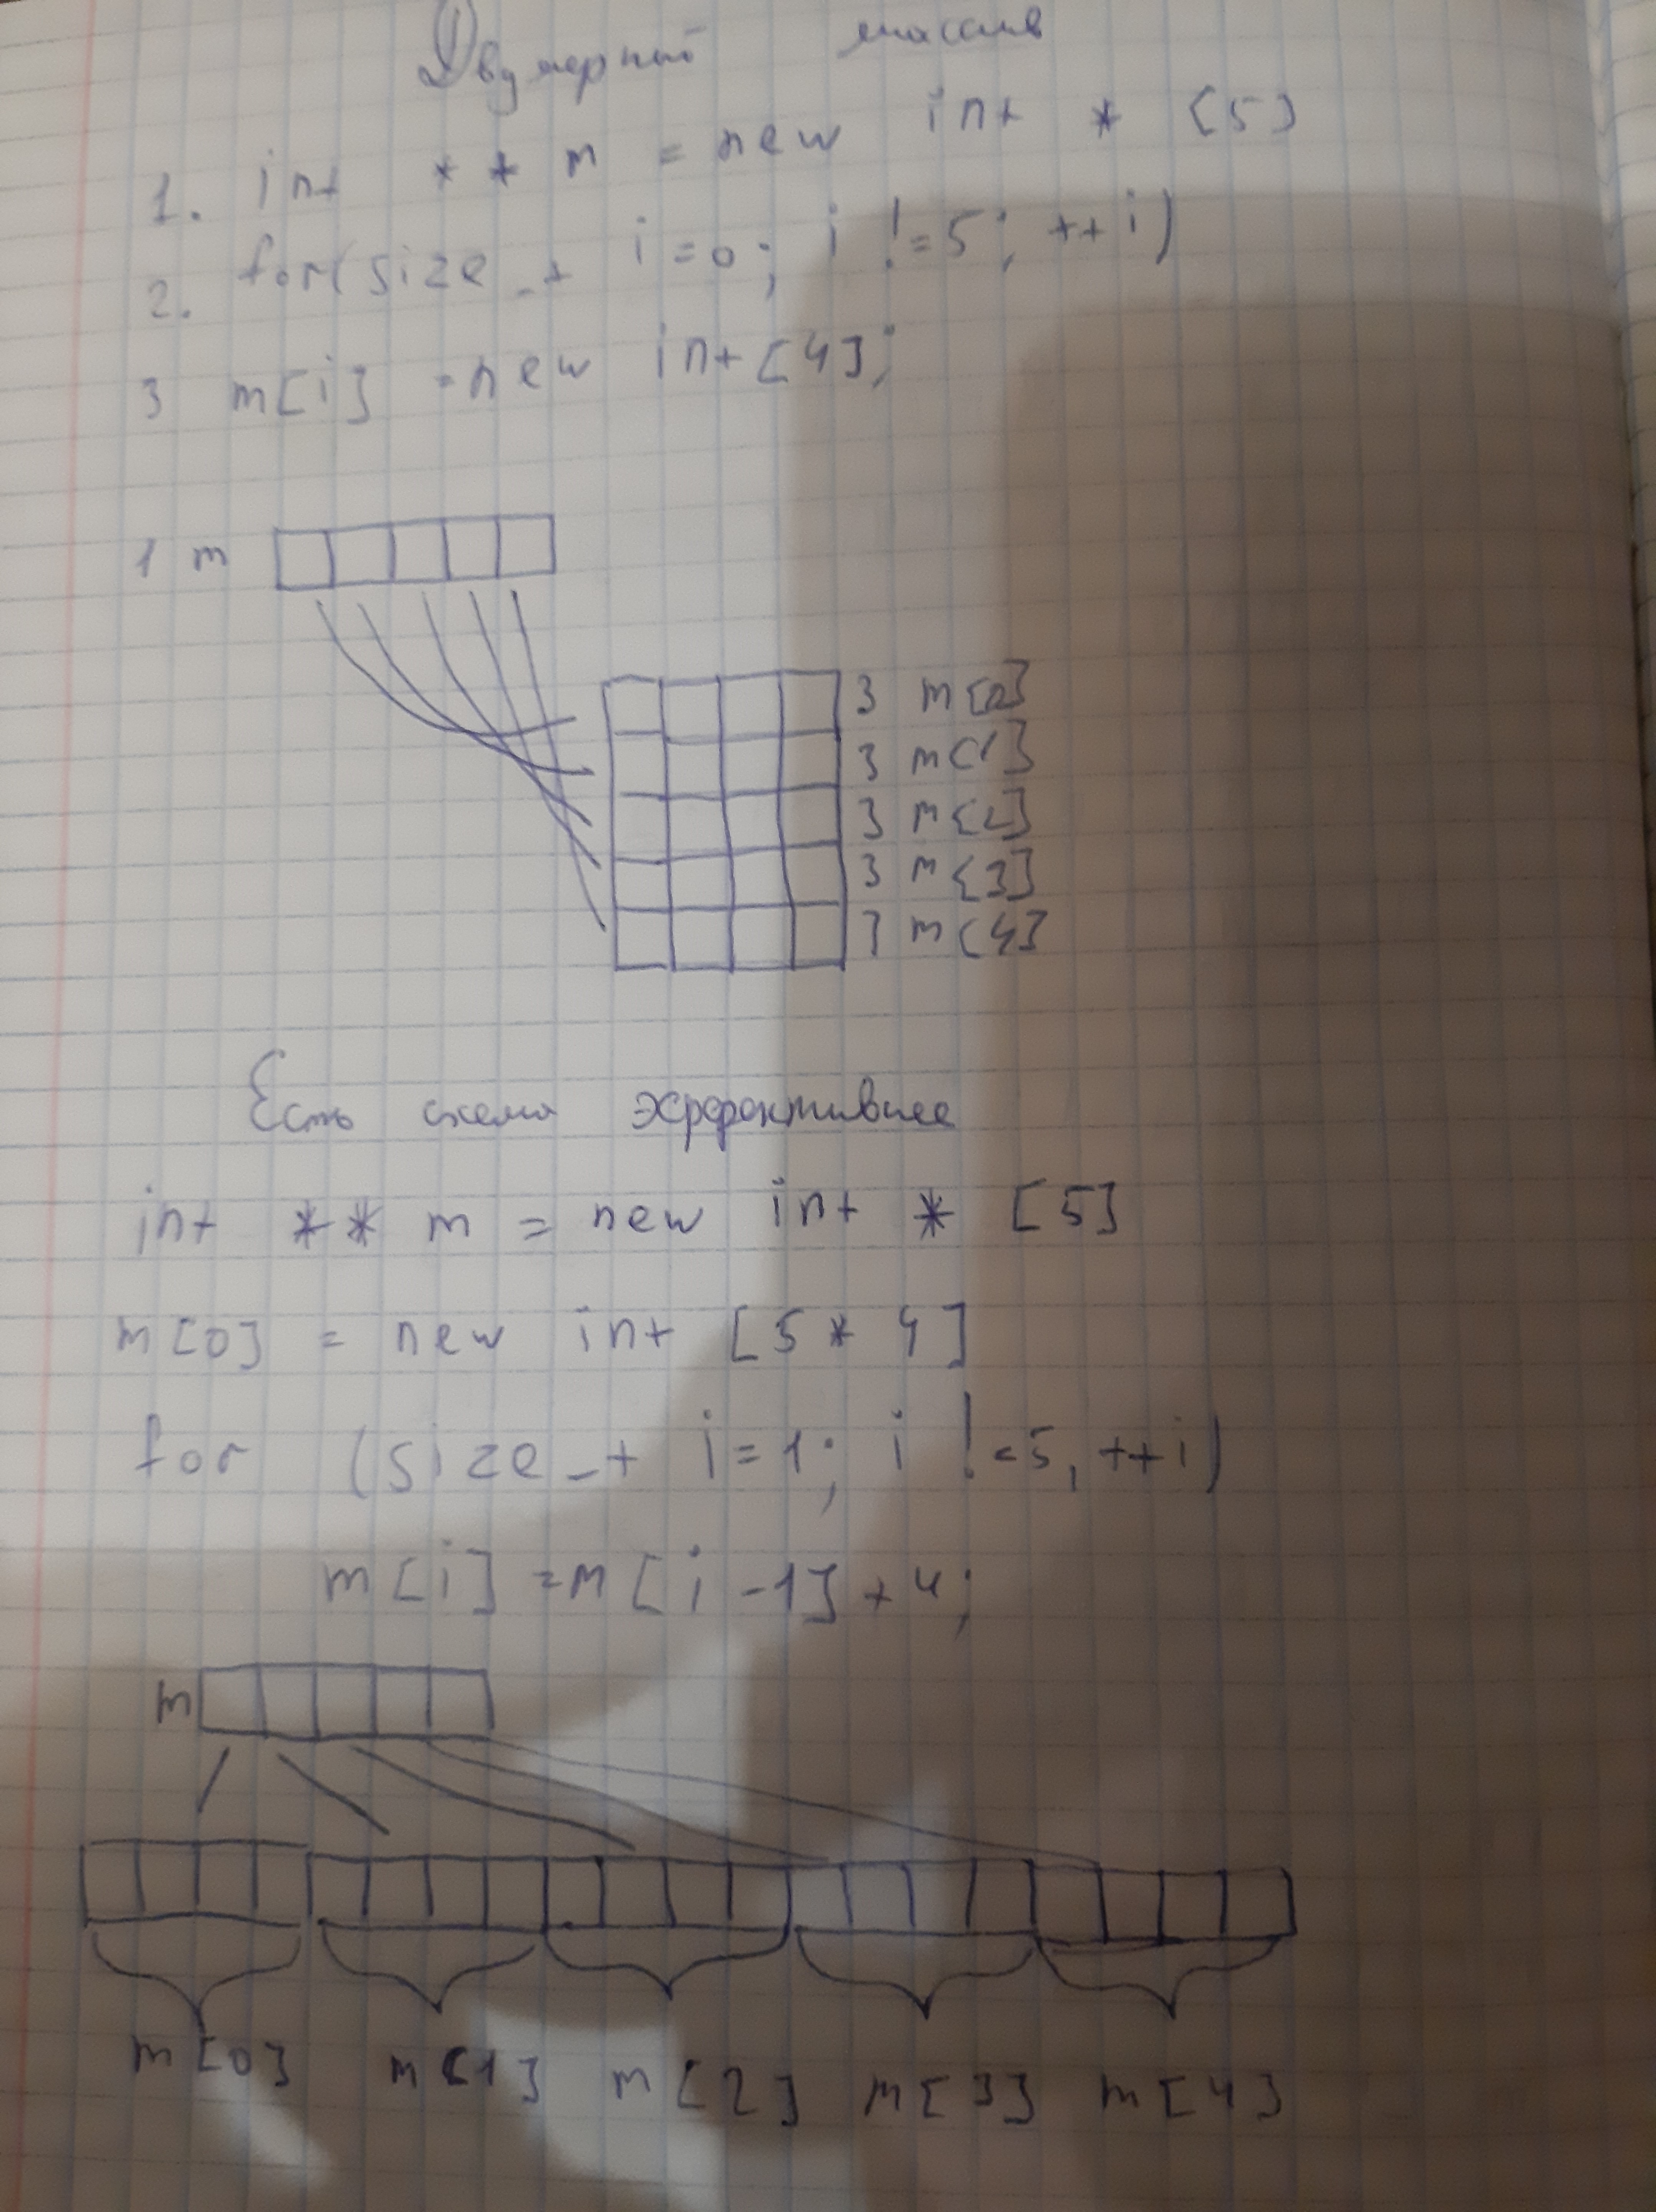 Двумерный массив
1. int * * m = new int * [5]
2. for(size_t i=0; i != 5; ++i)
3 m[i] = new int [4];
1 m
3 m[0]
3 m[1]
3 m[2]
3 m[3]
3 m[4]
Есть схема эффективнее
int ** m = new int * [5]
m[0] = new int [5 * 4]
for (size_t i=1; i !=5, ++i)
m[i] = m[i-1] + 4;
m
m[0] m[1] m[2] m[3] m[4]